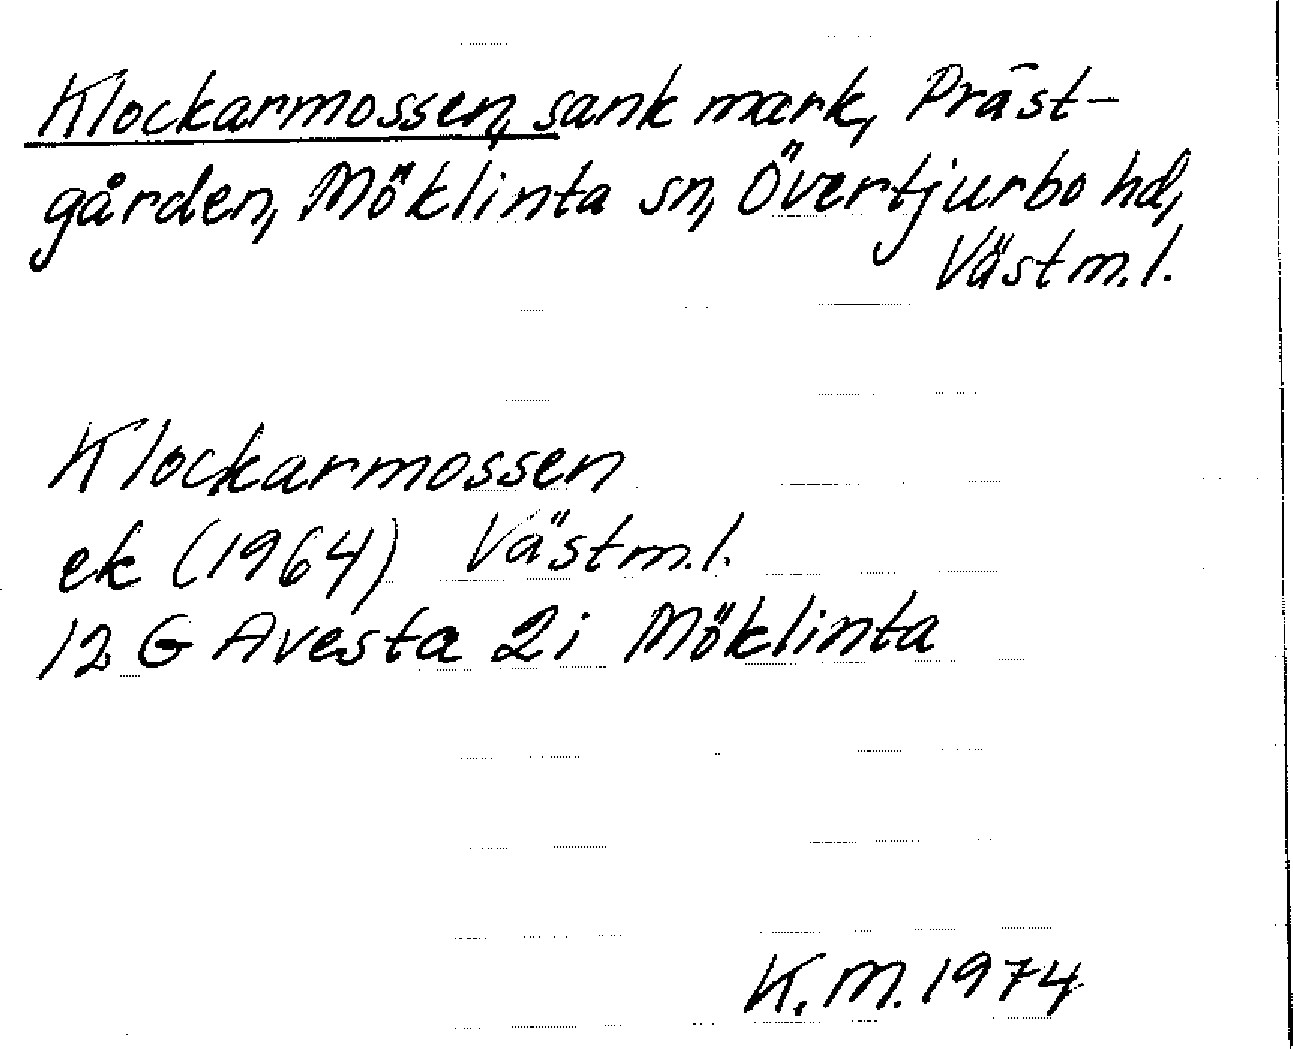 Klockarmossen, sank mark, Präst-
gården, Möklinta sn, Övertjurbo hd,
Västm.l.
Klockarmossen
ek (1964) Västm.l.
12 G Avesta 2i Möklinta
K.M. 1974